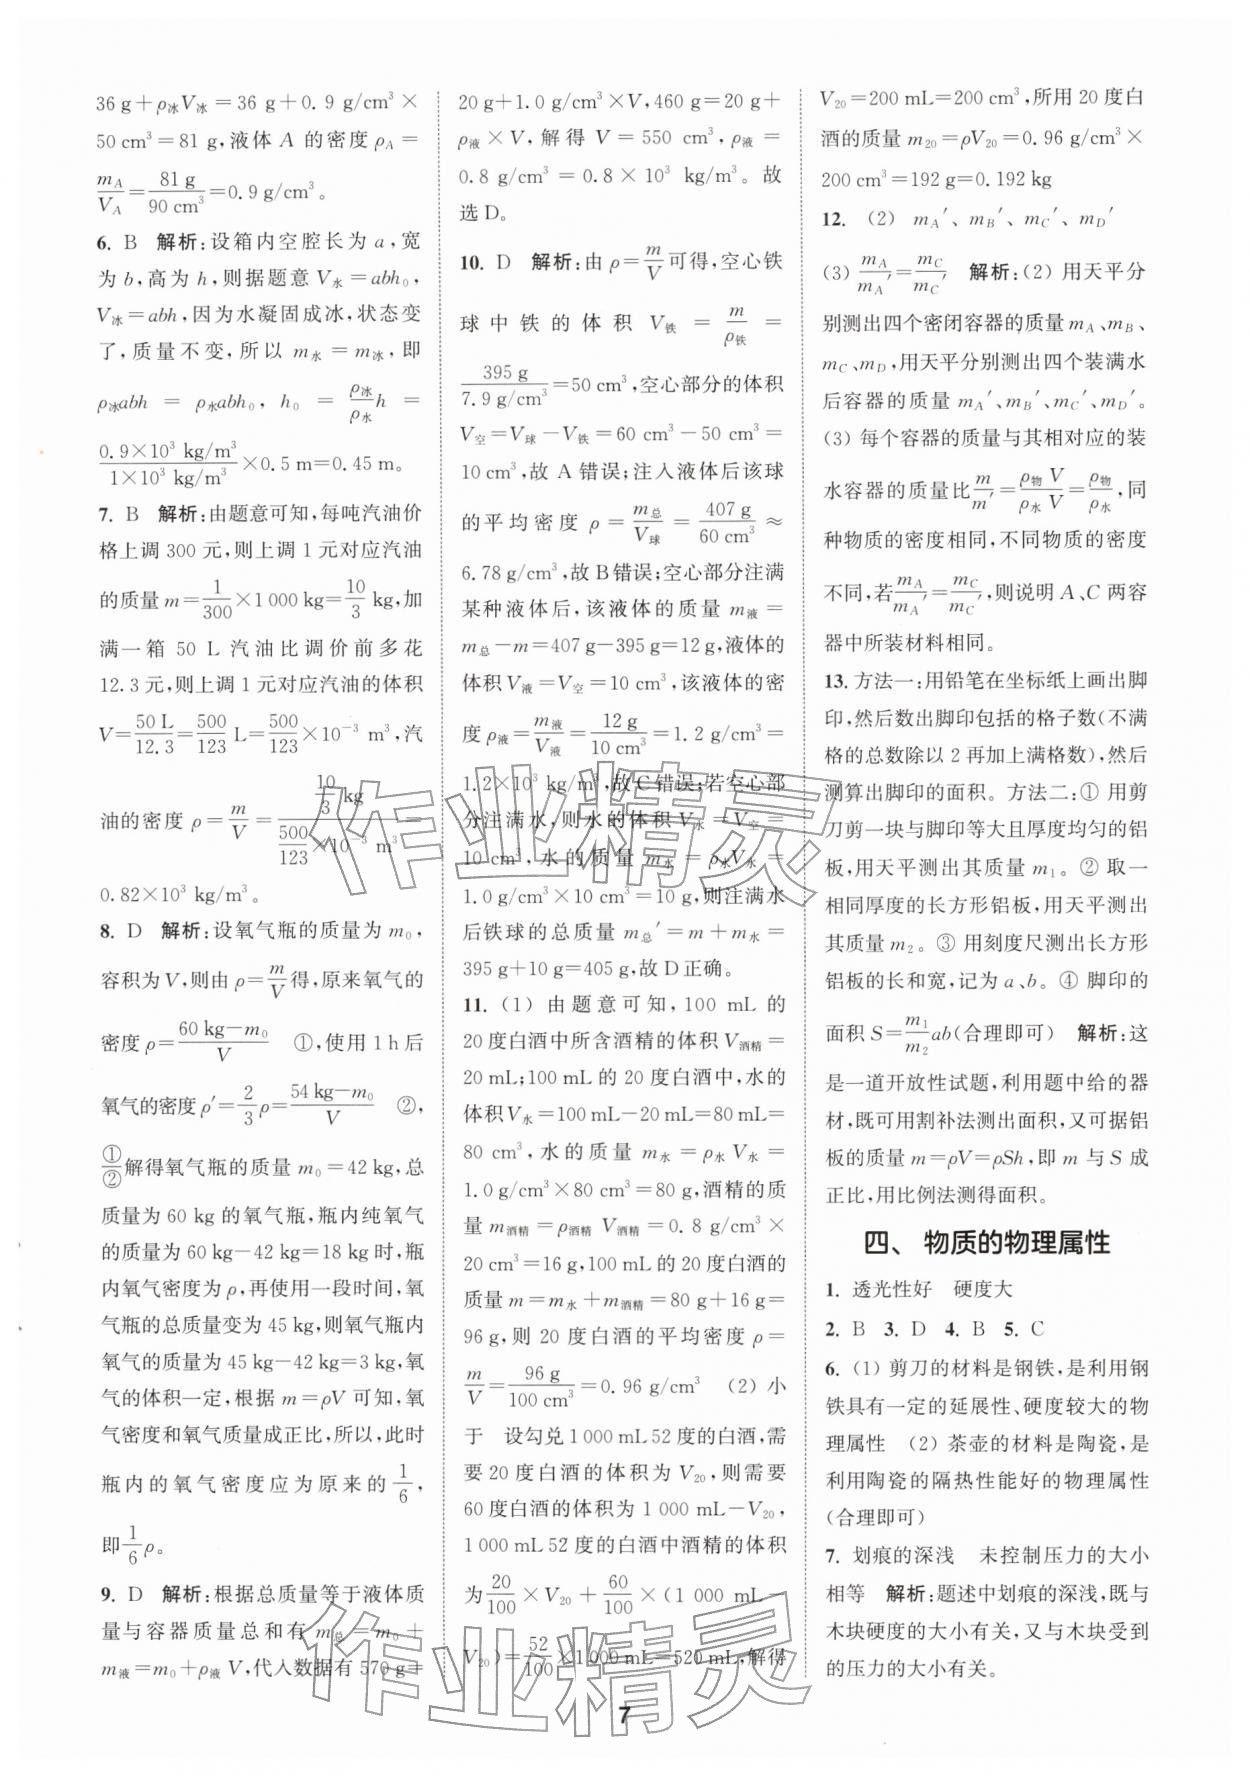 36 g+ρ冰V冰=36 g+0.9 g/cm³×
50 cm³=81 g,液体 A 的密度 ρA=
mA/VA=81 g/90 cm³=0.9 g/cm³。
6. B 解析:设箱内空腔长为 a,宽
为 b,高为 h,则据题意 V水=abh₀,
V冰=abh,因为水凝固成冰,状态变
了,质量不变,所以 m水=m冰,即
ρ冰abh = ρ水abh₀, h₀ = ρ冰/ρ水 h =
0.9×10³ kg/m³/1×10³ kg/m³×0.5 m=0.45 m。
7. B 解析:由题意可知,每吨汽油价
格上调 300 元,则上调 1 元对应汽油
的质量 m=1/300×1 000 kg=10/3 kg,加
满一箱 50 L 汽油比调价前多花
12.3 元,则上调 1 元对应汽油的体积
V=50 L/12.3=500/123 L=500/123×10⁻³ m³,汽
油的密度 ρ=m/V=10/3 kg/500/123×10⁻³ m³=
0.82×10³ kg/m³。
8. D 解析:设氧气瓶的质量为 m₀,
容积为 V,则由 ρ=m/V得,原来氧气的
密度 ρ=60 kg−m₀/V ①,使用 1 h 后
氧气的密度 ρ′=2/3ρ=54 kg−m₀/V ②,
①/②解得氧气瓶的质量 m₀=42 kg,总
质量为 60 kg 的氧气瓶,瓶内纯氧气
的质量为 60 kg−42 kg=18 kg时,瓶
内氧气密度为 ρ,再使用一段时间,氧
气瓶的总质量变为 45 kg,则氧气瓶内
氧气的质量为 45 kg−42 kg=3 kg,氧
气的体积一定,根据 m=ρV 可知,氧
气密度和氧气质量成正比,所以,此时
瓶内的氧气密度应为原来的1/6,
即1/6ρ。
9. D 解析:根据总质量等于液体质
量与容器质量总和有 m总=m₀+
m液=m₀+ρ液V,代入数据有 570 g=
20 g+1.0 g/cm³×V,460 g=20 g+
ρ液×V,解得 V=550 cm³,ρ液=
0.8 g/cm³=0.8×10³ kg/m³。故
选 D。
10. D 解析:由 ρ=m/V可得,空心铁
球中铁的体积 V铁 = m/ρ铁 =
395 g/7.9 g/cm³=50 cm³,空心部分的体积
V空=V球−V铁=60 cm³−50 cm³=
10 cm³,故 A 错误;注入液体后该球
的平均密度 ρ = m总/V球 = 407 g/60 cm³ ≈
6.78 g/cm³,故 B 错误;空心部分注满
某种液体后,该液体的质量 m液=
m总−m=407 g−395 g=12 g,液体的
体积 V液=V空=10 cm³,该液体的密
度 ρ液=m液/V液=12 g/10 cm³=1.2 g/cm³=
1.2×10³ kg/m³,故 C 错误;若空心部
分注满水,则水的体积 V水=V空=
10 cm³,水的质量 m水=ρ水V水=
1.0 g/cm³×10 cm³=10 g,则注满水
后铁球的总质量 m总′=m+m水=
395 g+10 g=405 g,故 D 正确。
11. (1) 由题意可知,100 mL 的
20 度白酒中所含酒精的体积 V酒精=
20 mL;100 mL 的 20 度白酒中,水的
体积V水=100 mL−20 mL=80 mL=
80 cm³,水的质量 m水=ρ水 V水=
1.0 g/cm³×80 cm³=80 g,酒精的质
量 m酒精=ρ酒精 V酒精=0.8 g/cm³×
20 cm³=16 g,100 mL 的 20 度白酒的
质量 m=m水+m酒精=80 g+16 g=
96 g,则 20 度白酒的平均密度 ρ=
m/V=96 g/100 cm³=0.96 g/cm³ (2) 小
于 设勾兑 1 000 mL 52 度的白酒,需
要 20 度白酒的体积为 V₂₀,则需要
60 度白酒的体积为 1 000 mL−V₂₀,
1 000 mL 52 度的白酒中酒精的体积
为20/100×V₂₀+60/100×(1 000 mL−
V₂₀)=52/100×1 000 mL=520 mL,解得
V₂₀=200 mL=200 cm³,所用 20 度白
酒的质量 m₂₀=ρV₂₀=0.96 g/cm³×
200 cm³=192 g=0.192 kg
12. (2) mA′、mB′、mC′、mD′
(3) mA/mA′=mC/mC′ 解析:(2) 用天平分
别测出四个密闭容器的质量 mA、mB、
mC、mD,用天平分别测出四个装满水
后容器的质量 mA′、mB′、mC′、mD′。
(3) 每个容器的质量与其相对应的装
水容器的质量比m/m′=ρ物V/ρ水V=ρ物/ρ水,同
种物质的密度相同,不同物质的密度
不同,若mA/mA′=mC/mC′,则说明 A、C 两容
器中所装材料相同。
13. 方法一:用铅笔在坐标纸上画出脚
印,然后数出脚印包括的格子数(不满
格的总数除以 2 再加上满格数),然后
测算出脚印的面积。方法二:① 用剪
刀剪一块与脚印等大且厚度均匀的铝
板,用天平测出其质量 m₁。② 取一
相同厚度的长方形铝板,用天平测出
其质量 m₂。③ 用刻度尺测出长方形
铝板的长和宽,记为 a、b。④ 脚印的
面积 S=m₁/m₂ab(合理即可) 解析:这
是一道开放性试题,利用题中给的器
材,既可用割补法测出面积,又可据铝
板的质量 m=ρV=ρSh,即 m 与 S 成
正比,用比例法测得面积。
四、 物质的物理属性
1. 透光性好 硬度大
2. B 3. D 4. B 5. C
6. (1) 剪刀的材料是钢铁,是利用钢
铁具有一定的延展性、硬度较大的物
理属性 (2) 茶壶的材料是陶瓷,是
利用陶瓷的隔热性能好的物理属性
(合理即可)
7. 划痕的深浅 未控制压力的大小
相等 解析:题述中划痕的深浅,既与
木块硬度的大小有关,又与木块受到
的压力的大小有关。
作业精灵
作业精灵
7